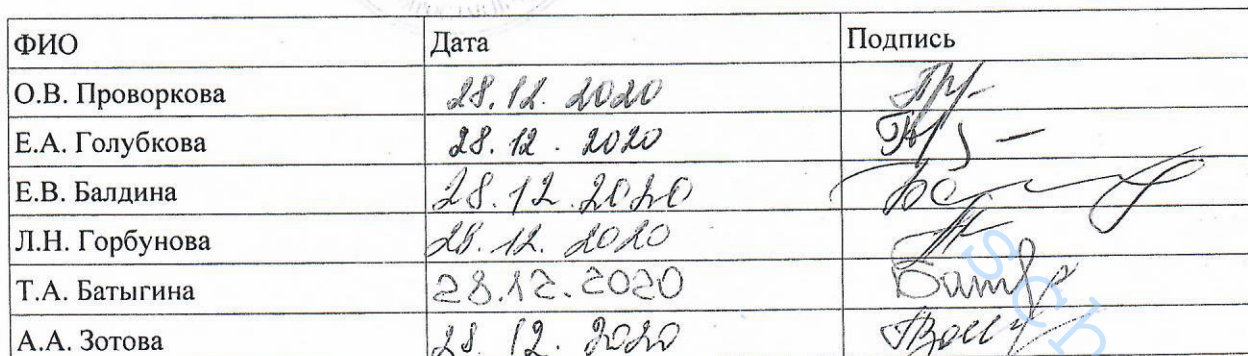 ФИО Дата Подпись
О.В. Проворкова 28.12.2020
Е.А. Голубкова 28.12.2020
Е.В. Балдина 28.12.2020
Л.Н. Горбунова 28.12.2020
Т.А. Батыгина 28.12.2020
А.А. Зотова 28.12.2020
sch